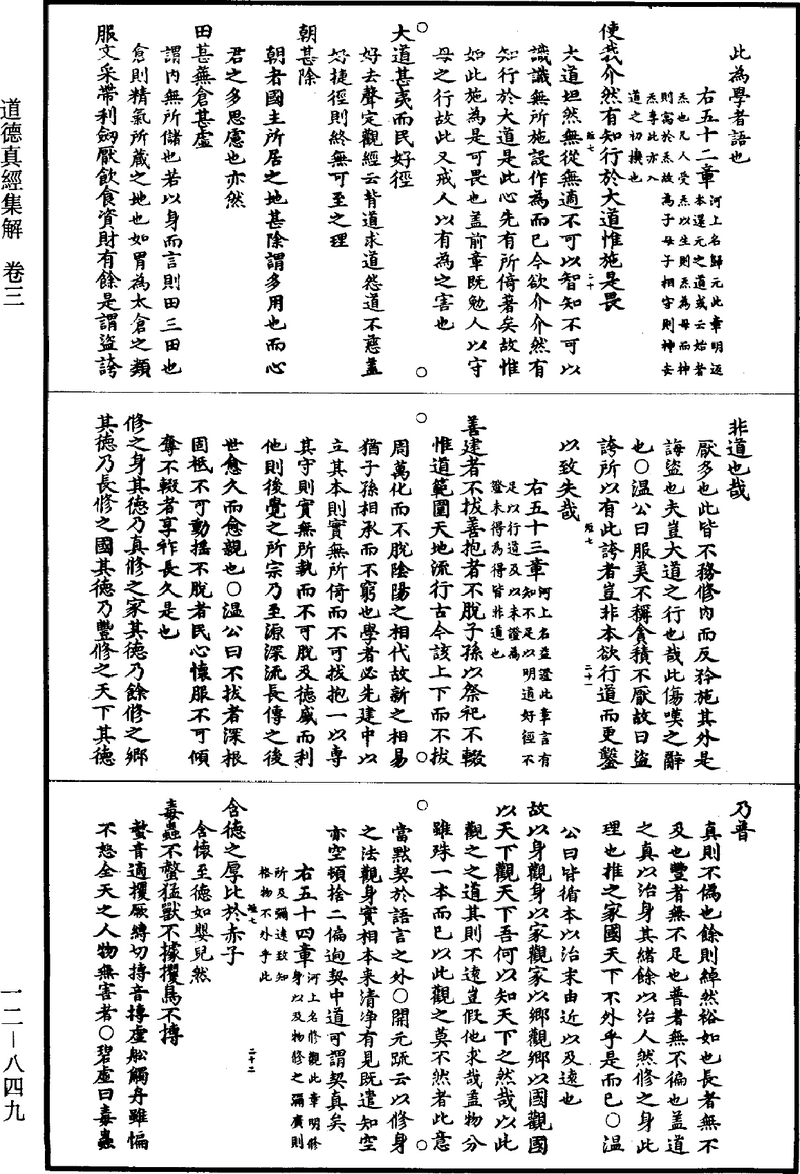 道德真經集解　卷三
一二—八四九
此為學者語也
右五十二章
河上名歸元此章明返
本還元之道或云始者
炁也凡人受炁以生則炁為母而神
則寓於炁故為子母子相守則神安
炁專此亦入
道之切換也
使我介然有知行於大道惟施是畏
大道坦然無從無適不可以智知不可以
識識無所施設作為而已今欲介介然有
知行於大道是此心先有所倚著矣故惟
如此施為是可畏也蓋前章既勉人以守
母之行故此又戒人以有為之害也
大道甚夷而民好徑
好去聲定觀經云背道求道怨道不慈蓋
好捷徑則終無可至之理
朝甚除
朝者國主所居之地甚除謂多用也而心
君之多思慮也亦然
田甚蕪倉甚虛
謂內無所儲也若以身而言則田三田也
倉則精氣所藏之地也如胃為太倉之類
服文采帶利劒厭飲食資財有餘是謂盜誇
非道也哉
厭多也此皆不務修內而反矜施其外是
誨盜也夫豈大道之行也哉此傷嘆之辭
也○溫公曰服美不稱貪積不厭故曰盜
誇所以有此誇者豈非本欲行道而更鑿
以致失哉
右五十三章
河上名益證此章言有
知不足以明道好徑不
足以行道及以未證為
證未得為得皆非道也
善建者不拔善抱者不脫子孫以祭祀不輟
惟道範圍天地流行古今該上下而不拔
周萬化而不脫陰陽之相代故新之相易
猶子孫相承而不窮也學者必先建中以
立其本則實無所倚而不可拔抱一以專
其守則實無所執而不可脫及德盛而利
他則後覺之所宗乃至源深流長傳之後
世愈久而愈觀也○溫公曰不拔者深根
固柢不可動搖不脫者民心懷服不可傾
奪不輟者享祚長久是也
修之身其德乃真修之家其德乃餘修之鄉
其德乃長修之國其德乃豐修之天下其德
乃普
真則不偽也餘則綽然裕如也長者無不
及也豐者無不足也普者無不徧也蓋道
之真以治身其緒餘以治人然修之身此
理也推之家國天下不外乎是而已○溫
公曰皆循本以治末由近以及遠也
故以身觀身以家觀家以鄉觀鄉以國觀國
以天下觀天下吾何以知天下之然哉以此
觀之之道其則不遠豈假他求哉蓋物分
雖殊一本而已以此觀之莫不然者此意
當默契於語言之外○開元䟽云以修身
之法觀身實相本来清淨有見既遣知空
亦空頓捨二偏迥契中道可謂契真矣
右五十四章
河上名修觀此章明修
身以及物修之彌廣則
所及彌遠致知
格物不外乎此
含德之厚比於赤子
含懷至德如嬰兒然
毒蟲不螫猛獸不據攫鳥不搏
螫音適攫厥縛切搏音博虛舩觸舟雖惼
不怨全天之人物無害者○碧虛曰毒蟲